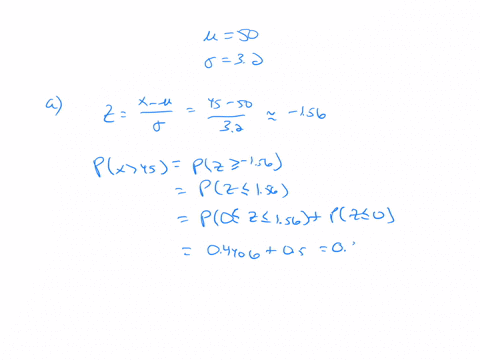 μ = 50
σ = 3.2
a) Z = (x-μ)/σ = (45-50)/3.2 ≈ -1.56
P(x>45) = P(Z ≥ -1.56)
= P(Z ≤ 1.56)
= P(0≤ Z ≤ 1.56) + P(Z ≤ 0)
= 0.4406 + 0.5 = 0.